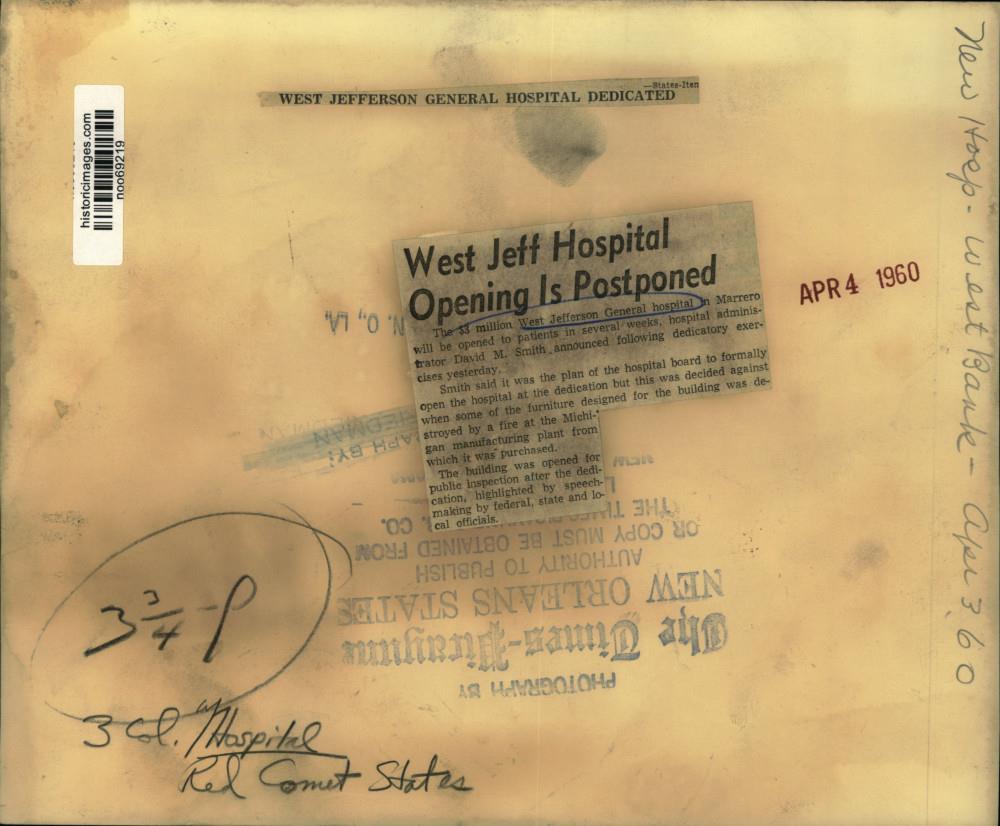 —States-Iten
WEST JEFFERSON GENERAL HOSPITAL DEDICATED
historicimages.com
noo69219
West Jeff Hospital
Opening Is Postponed
The $3 million West Jefferson General hospital in Marrero
will be opened to patients in several weeks, hospital adminis-
trator David M. Smith announced following dedicatory exer-
cises yesterday.
Smith said it was the plan of the hospital board to formally
open the hospital at the dedication but this was decided against
when some of the furniture designed for the building was de-
stroyed by a fire at the Michi-
gan manufacturing plant from
which it was purchased.
The building was opened for
public inspection after the dedi-
cation, highlighted by speech-
making by federal, state and lo-
cal officials.
APR 4 1960
New Hosp - West Bank - Apr 3, 60
PHOTOGRAPH BY
The Times-Picayune
NEW ORLEANS STATES
AUTHORITY TO PUBLISH
OR COPY MUST BE OBTAINED FROM
THE TIMES CO.
N. O., LA.
APH BY:
IEDMAN
3 3/4 - P
3 Col. "Hospital
Red Comet States